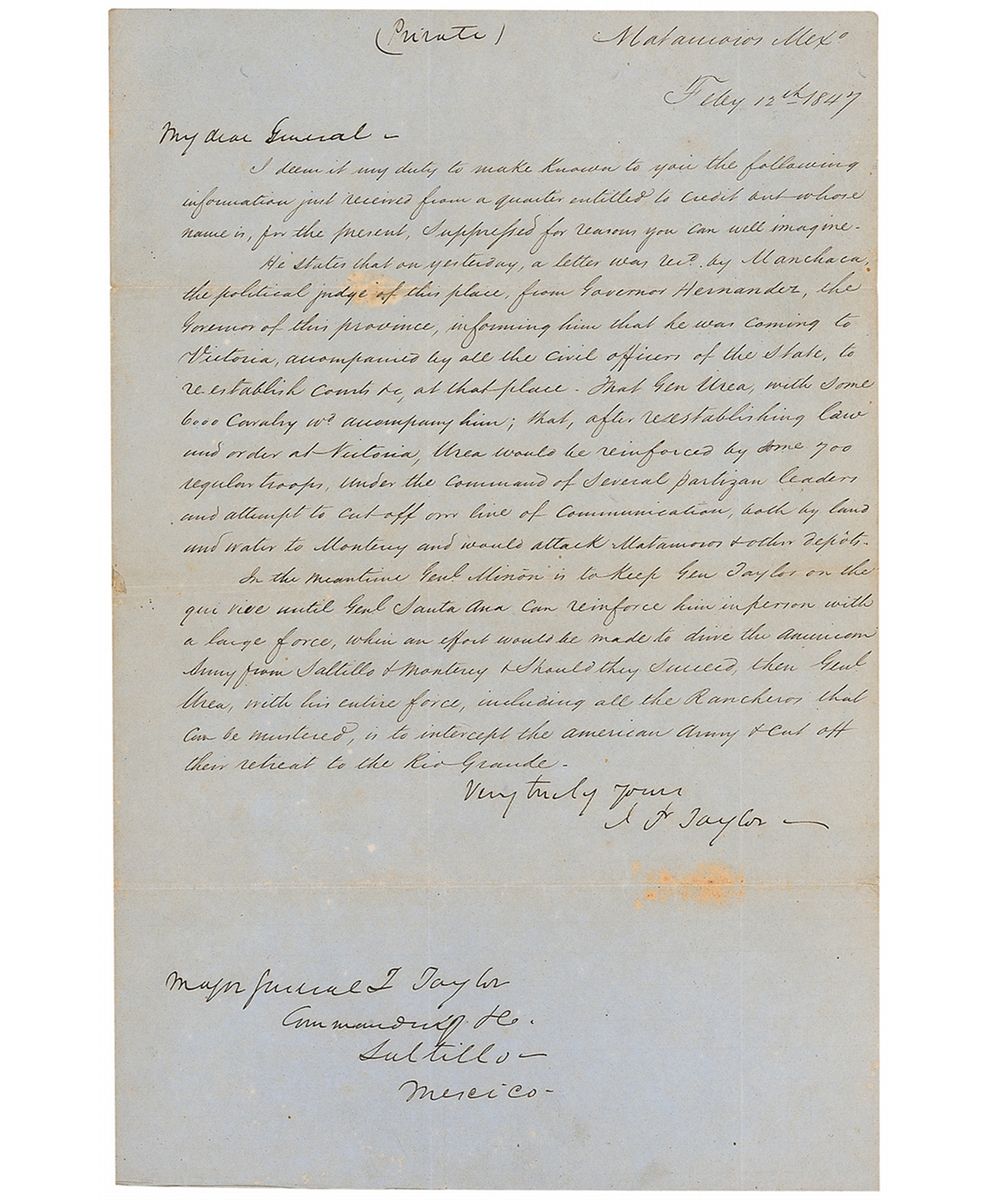 (Private) Matamoros Mexo
Feby 12th 1847
My dear General -
I deem it my duty to make known to you the following
information just received from a quarter entitled to credit but whose
name is, for the present, Suppressed for reasons you can well imagine -
He states that on yesterday, a letter was recd. by Manchaca,
the political judge of this place, from Governor Hernandez, the
Governor of this province, informing him that he was coming to
Victoria, accompanied by all the civil officers of the State, to
reestablish courts &c, at that place - That Gen Urea, with some
6000 Cavalry wd accompany him; that, after reestablishing law
and order at Victoria, Urea would be reinforced by some 700
regular troops, under the command of several partizan leaders
and attempt to cut off our line of communication, both by land
and water to Monterey and would attack Matamoros & other depots -
In the meantime Genl Minon is to keep Gen Taylor on the
qui vive until Genl Santa Ana can reinforce him in person with
a large force, when an effort would be made to drive the American
Army from Saltillo & Monterey & Should they Succeed, then Genl
Urea, with his entire force, including all the Rancheros that
can be mustered, is to intercept the American Army & cut off
their retreat to the Rio Grande -
Very truly yours
Taylor -
Major General Z Taylor
Commanding &c.
Saltillo -
Mexico -